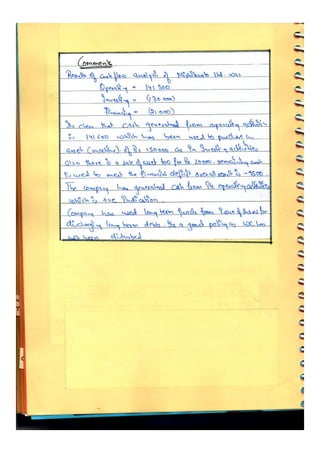 Comments
Results of cash flow analysis of Minikosts ltd.
Operating = 141 500
Investing = (130 000)
Financing = (21 000)
Its clear that cash generated from operating activities
is 141 500 which has been used to purchase
asset (machine) of Rs 150000 as in Investing activities
Also there is a sale of asset too for Rs 20000. remaining cash
is used to meet the financial deficit overall result is -9500.
The company has generated cash from its operating activities
which is the indication
Company has used long term funds from issue of shares for
discharging long term debts. Its a good policy as WC has
not been disturbed